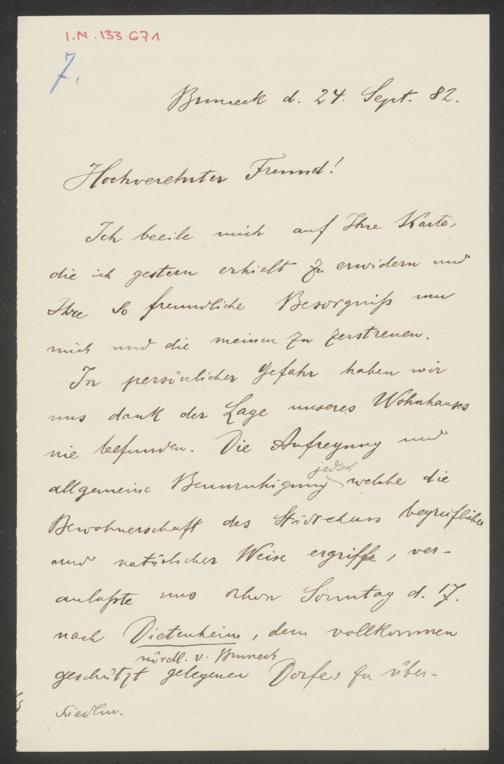 I.N. 133 671
7.
Bruneck d. 24. Sept. 82.
Hochverehrter Freund!
Ich beeile mich auf Ihre Karte,
die ich gestern erhielt zu erwidern und
Ihre so freundliche Besorgniß um
mich und die meinen zu zerstreuen.
In persönlicher Gefahr haben wir
uns dank der Lage unseres Wohnhauses
nie befunden. Die Aufregung und
jedoch
allgemeine Beunruhigung welche die
Bewohnerschaft des Städtchens begreiflicher
und natürlicher Weise ergriffe, ver-
anlaßte uns schon Sonntag d. 17.
nach Dietenheim, dem vollkommen
nördl. v. Bruneck
geschützt gelegenen Dorfe, zu über-
siedeln.